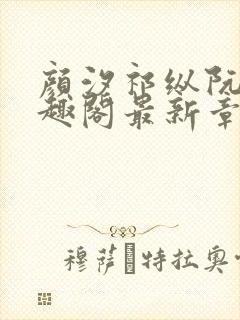 顔汐祁纵阮
趣阁最新章
穆萨 特拉奥